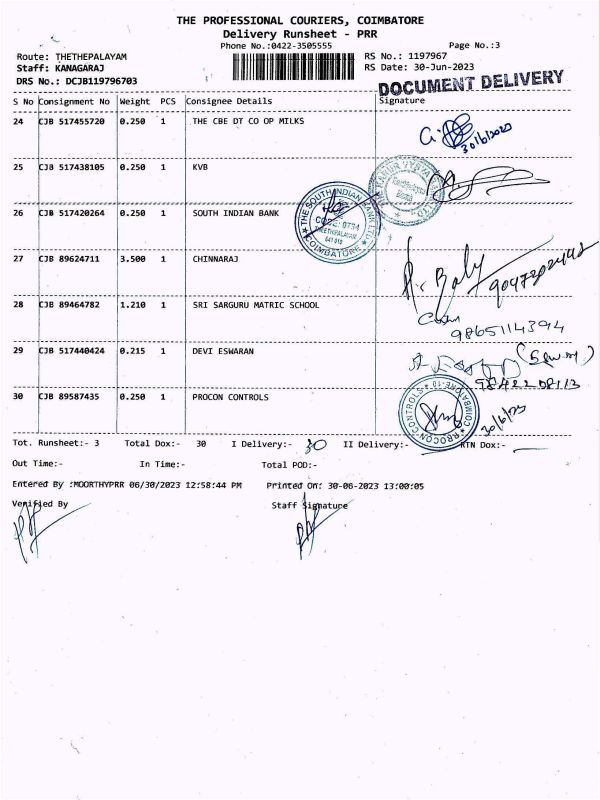 THE PROFESSIONAL COURIERS, COIMBATORE
Delivery Runsheet - PRR
Phone No.:0422-3505555 Page No.:3
Route: THETHEPALAYAM RS No.: 1197967
Staff: KANAGARAJ RS Date: 30-Jun-2023
DRS No.: DCJB119796703
DOCUMENT DELIVERY
S No Consignment No Weight PCS Consignee Details Signature
24 CJB 517455720 0.250 1 THE CBE DT CO OP MILKS
30/6/2023
25 CJB 517438105 0.250 1 KVB
26 CJB 517420264 0.250 1 SOUTH INDIAN BANK
THE SOUTH INDIAN BANK LTD
CODE: 0734
THEETHIPALAYAM
641 010
COIMBATORE
27 CJB 89624711 3.500 1 CHINNARAJ
9047202442
28 CJB 89464782 1.210 1 SRI SARGURU MATRIC SCHOOL
9865114394
29 CJB 517440424 0.215 1 DEVI ESWARAN
9842208113
30 CJB 89587435 0.250 1 PROCON CONTROLS
PROCON CONTROLS COIMBATORE-10
30/6/23
Tot. Runsheet:- 3 Total Dox:- 30 I Delivery:- 30 II Delivery:- RTN Dox:-
Out Time:- In Time:- Total POD:-
Entered By :MOORTHYPRR 06/30/2023 12:58:44 PM Printed On: 30-06-2023 13:00:05
Verified By Staff Signature